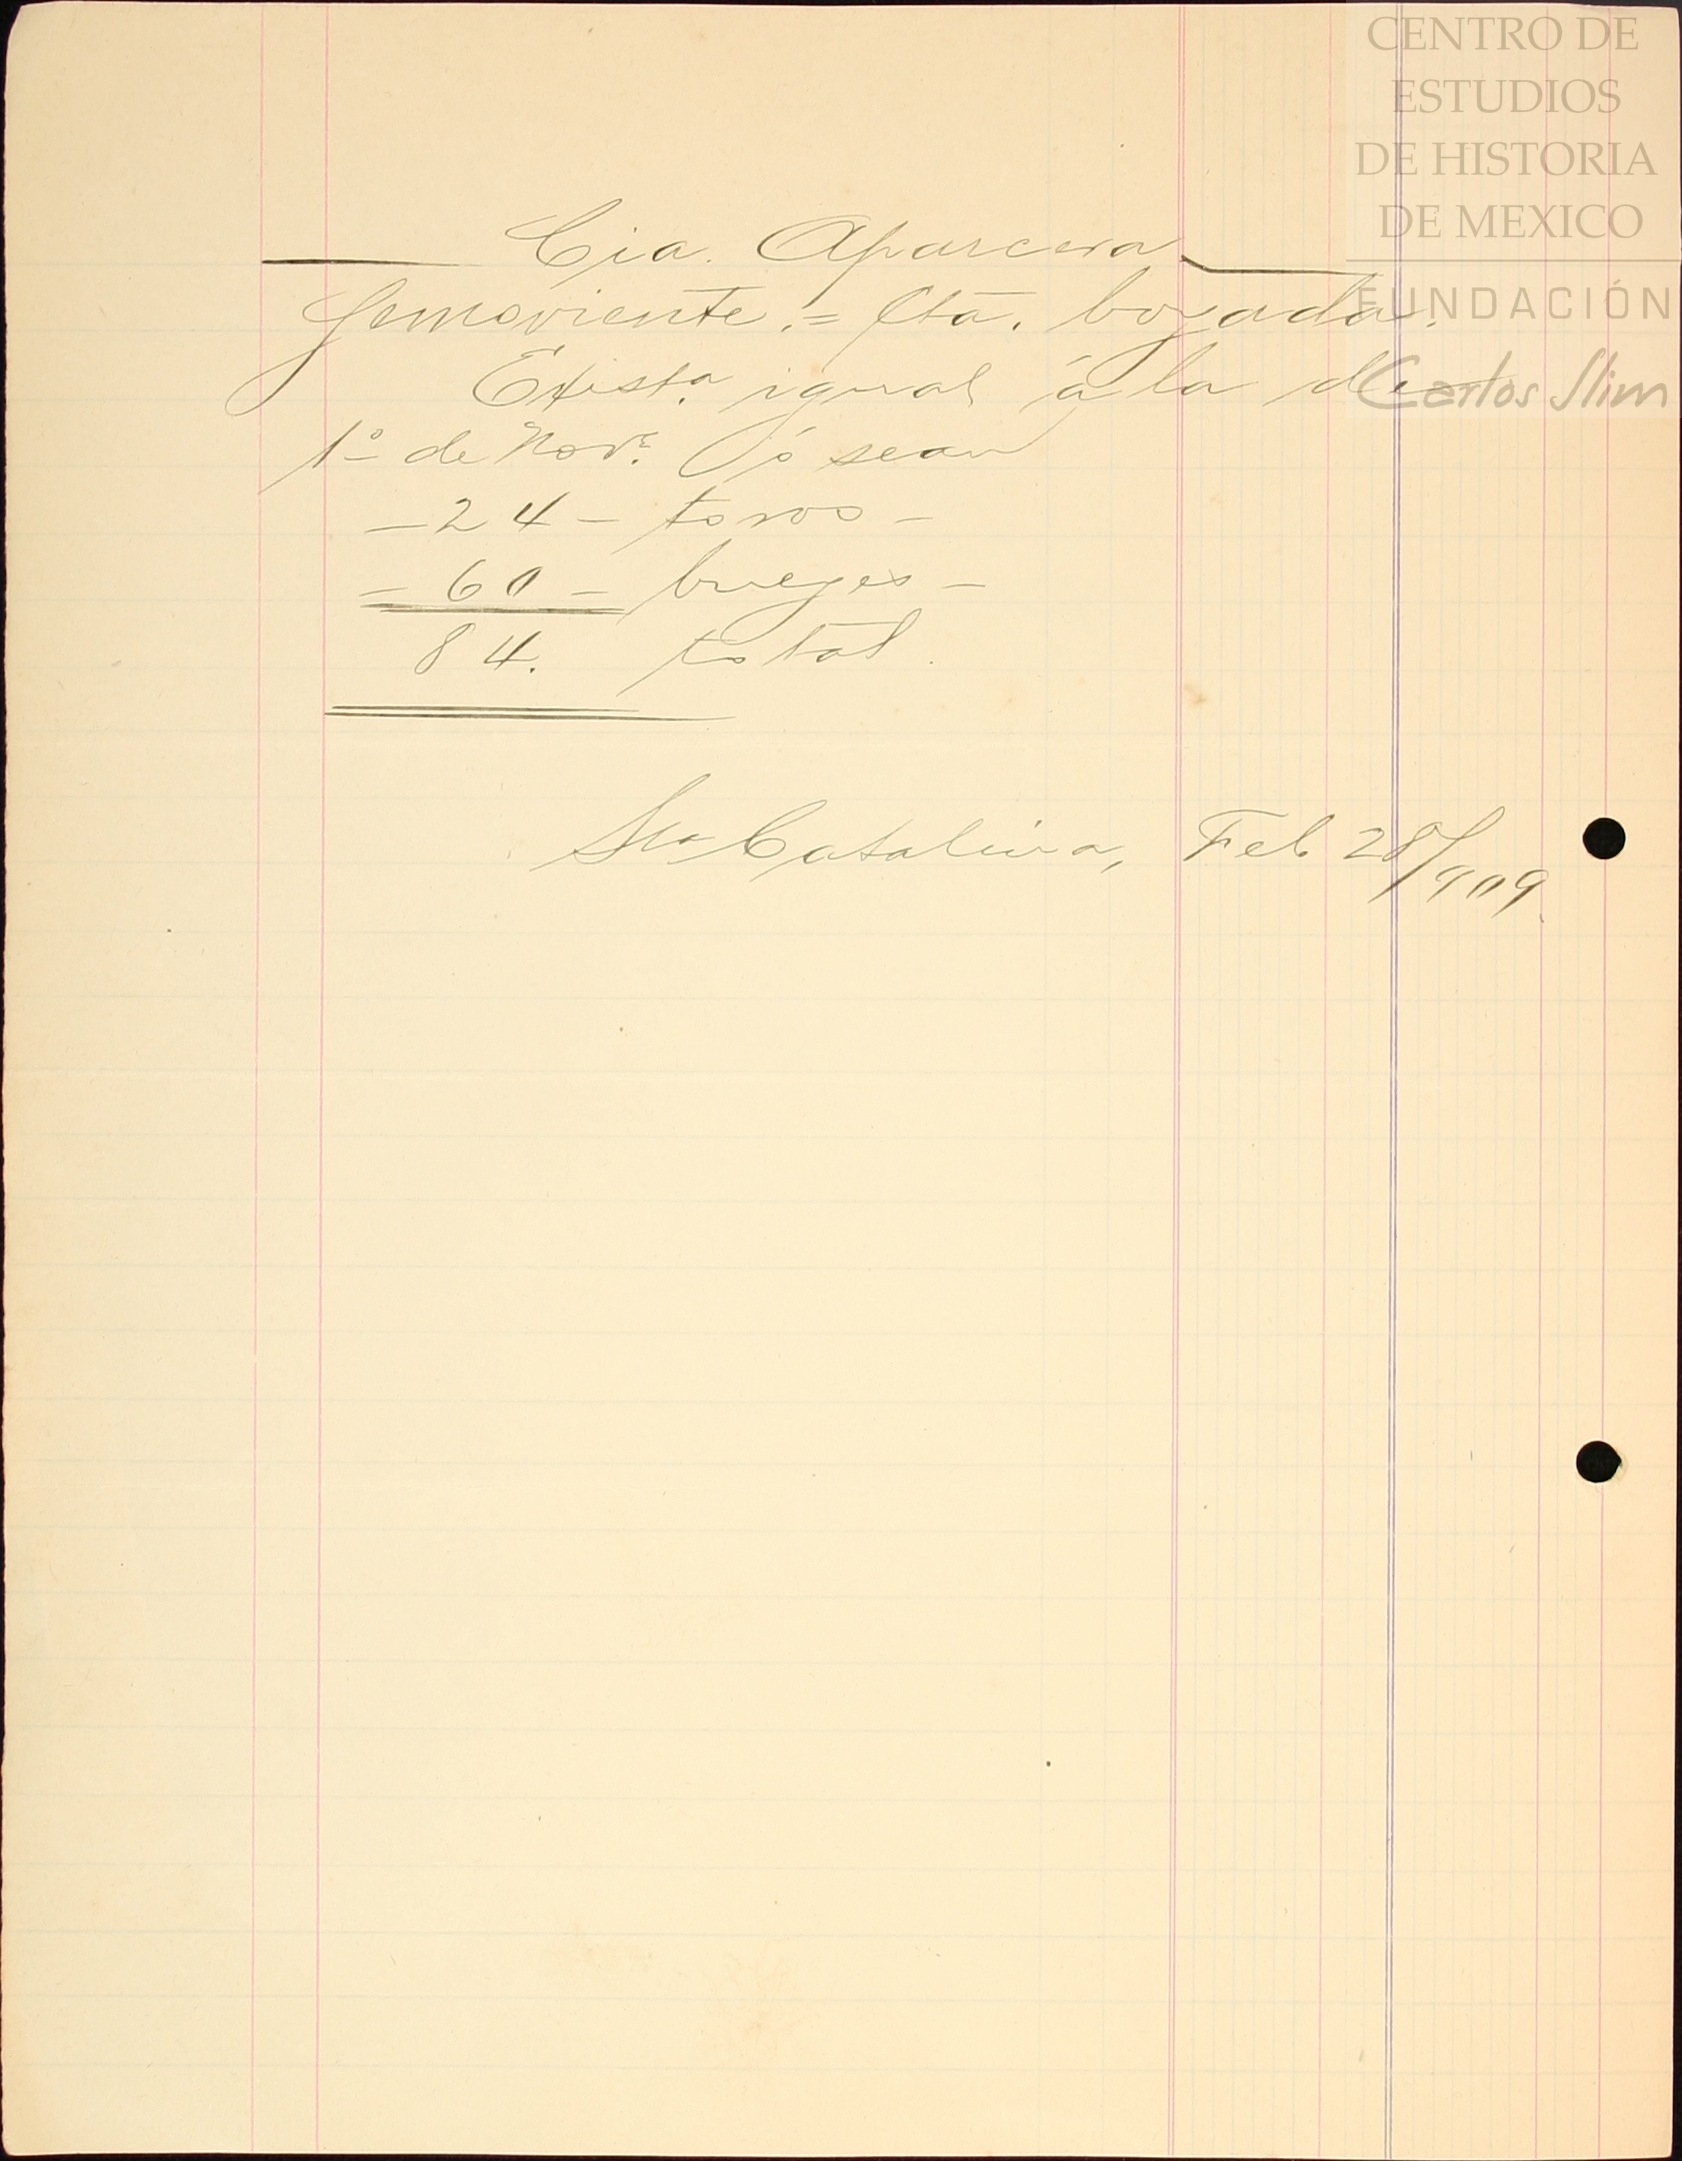 CENTRO DE
ESTUDIOS
DE HISTORIA
DE MEXICO
FUNDACIÓN
Carlos Slim
Cia. Aparcera
Semoviente.= Cta. boyada.
Exista. igual á la de
1º de Nov.e ó sean
- 24 - toros -
- 60 - bueyes -
84. total.
Sta Catalina, Feb 28/909.